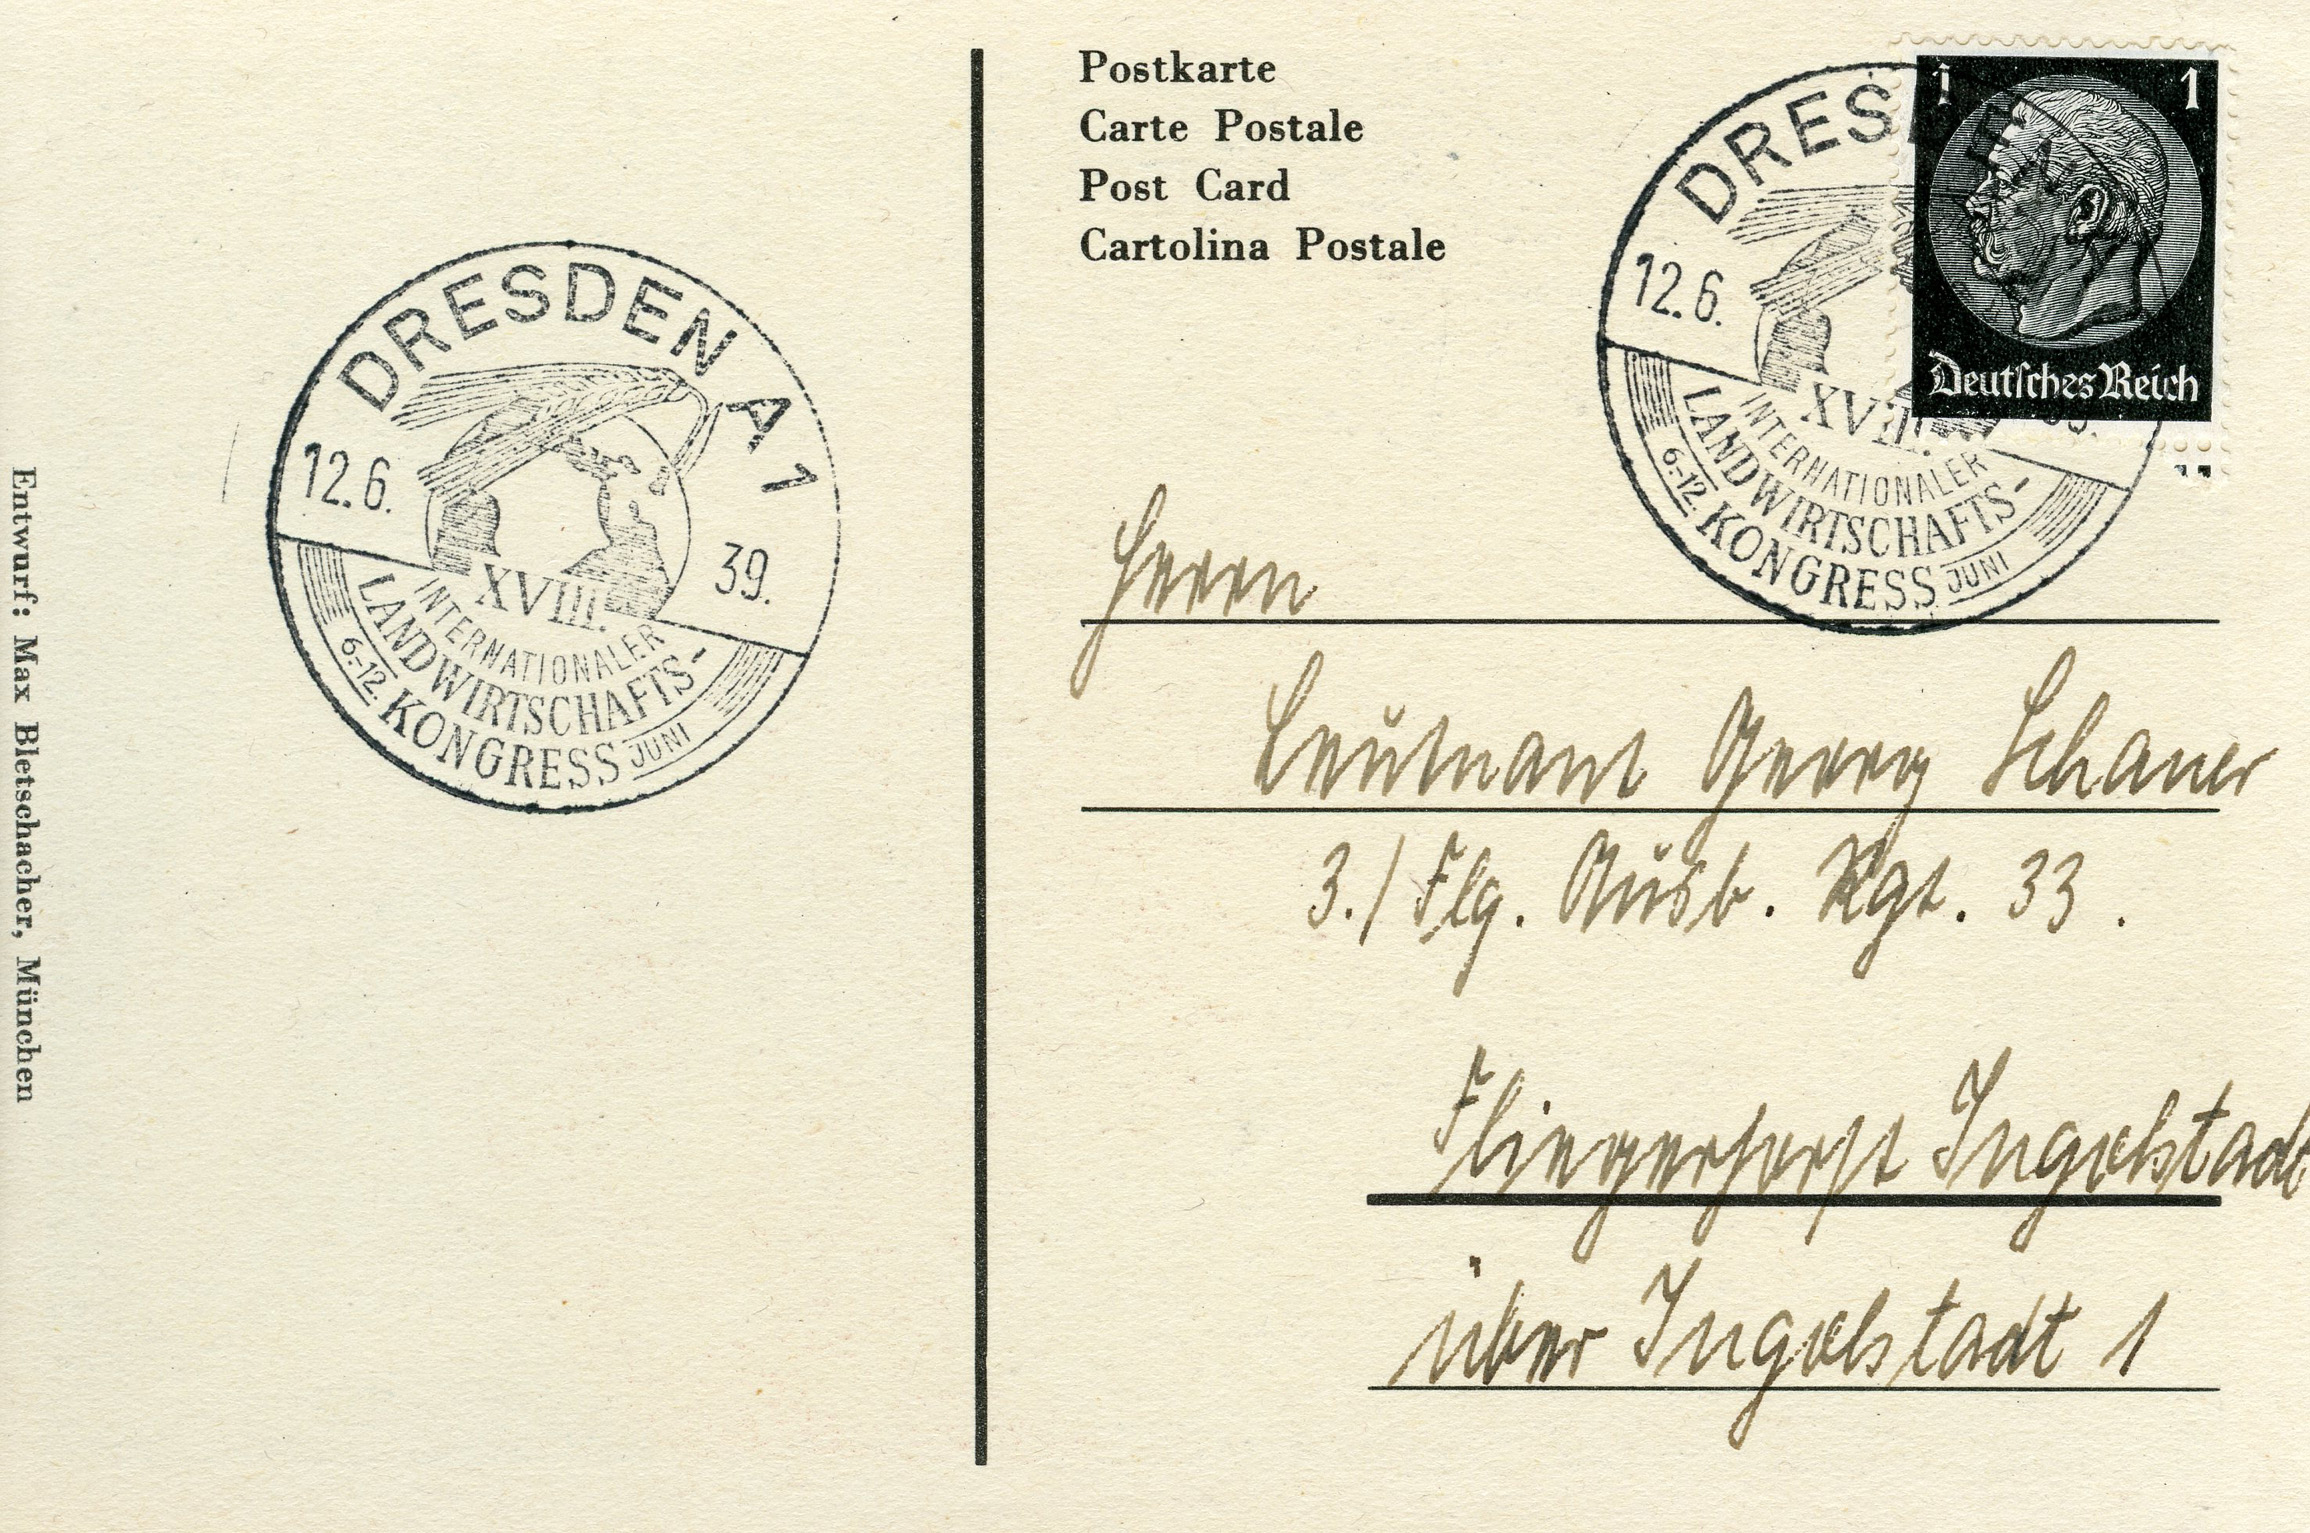 Entwurf: Max Bletschacher, München
DRESDEN A 1
12.6.
39.
XVIII.
INTERNATIONALER
LANDWIRTSCHAFTS-
6.-12. KONGRESS JUNI
Postkarte
Carte Postale
Post Card
Cartolina Postale
DRESDEN A
12.6.
39.
XVIII.
INTERNATIONALER
LANDWIRTSCHAFTS-
6.-12. KONGRESS JUNI
1 1
Deutsches Reich
Herrn
Leutnant Georg Schauer
3./Flg. Ausb. Rgt. 33.
Fliegerhorst Ingolstadt
über Ingolstadt 1